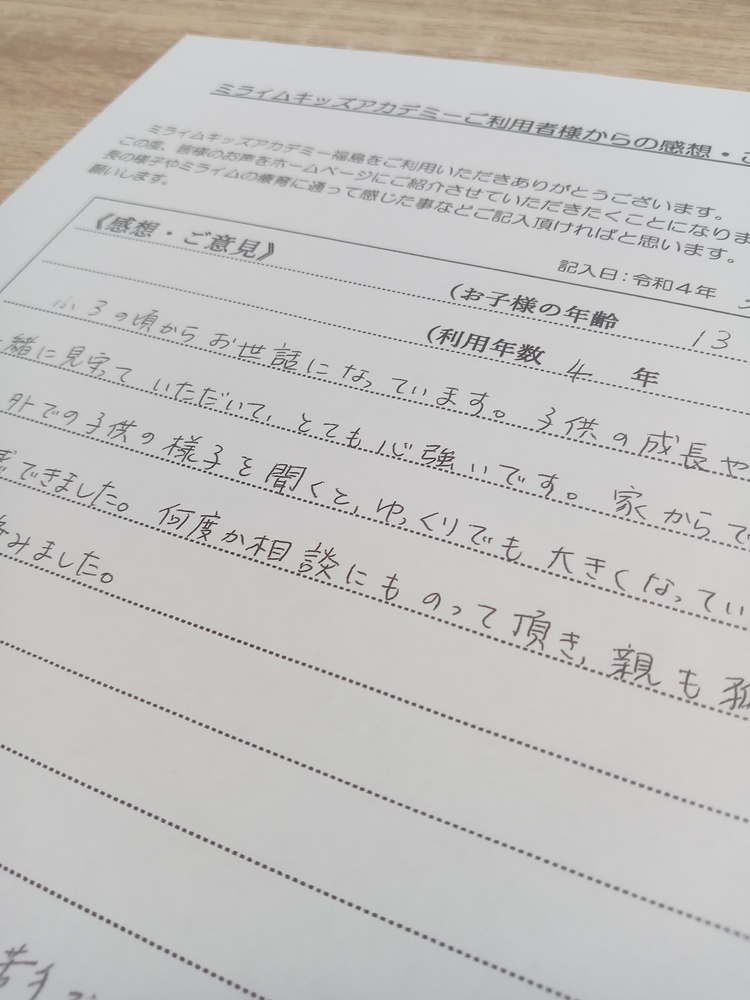 ミライムキッズアカデミーご利用者様からの感想・ご
ミライムキッズアカデミー福島をご利用いただきありがとうございます。
この度、皆様のお声をホームページにご紹介させていただきたくことになりま
長の様子やミライムの療育に通って感じた事などご記入頂ければと思います。
願いします。
記入日：令和４年
《感想・ご意見》
(お子様の年齢 13
(利用年数 4 年
小3の頃からお世話になっています。子供の成長や
緒に見守っていただいて、とても心強いです。家からで
外での子供の様子を聞くと、ゆっくりでも大きくなってい
できました。何度か相談にものって頂き、親も孤
みました。